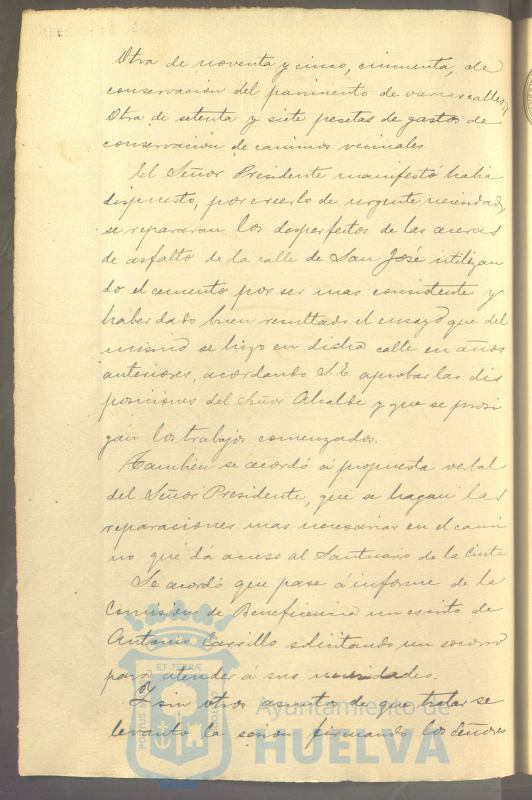 Otra de noventa y cinco, cincuenta, de
conservacion del pavimento de varias calles y
Otra de setenta y siete pesetas de gastos de
conservacion de caminos vecinales.
El Señor Presidente manifestó habia
dispuesto, por creerlo de urgente necesidad,
se repararan los desperfectos de las aceras
de asfalto de la calle de San José utilizan
do el cemento por ser mas consistente y
haber dado buen resultado el ensayo que del
mismo se hizo en dicha calle en años
anteriores, acordando S.E. aprobar las dis
posiciones del Señor Alcalde y que se prosi
gan los trabajos comenzados.
Tambien se acordó á propuesta verbal
del Señor Presidente, que se hagan las
reparaciones mas necesarias en el cami
no que dá acceso al Santuario de la Cinta.
Se acordó que pase á informe de la
Comision de Beneficencia un escrito de
Antonio Carrillo solicitando un socorro
para atender á sus necesidades.
Y sin otros asuntos de que tratar se
levantó la sesion firmando los Señores
ET TERRÆ
Ayuntamiento de
HUELVA